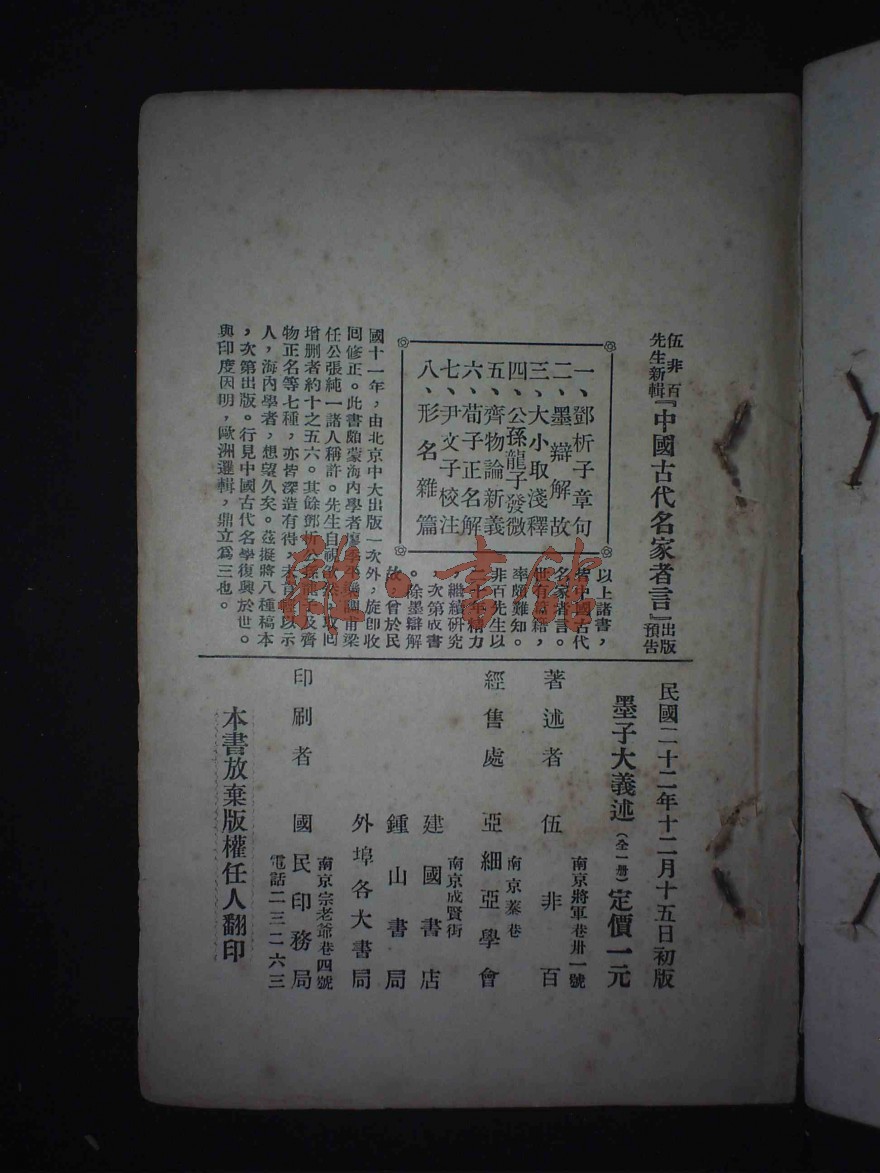 伍非百
先生新輯
『中國古代名家者言』
出版
預告
一、鄧析子章句
二、墨辯解故
三、大小取淺釋
四、公孫龍子發微
五、齊物論新義
六、荀子正名解
七、尹文子校注
八、形名雜篇
以上諸書，
皆中國古代
名家者言。
世有籍，
率頗難知。
非百先生以
十年精力
，繼續研究
，次第成書
。除墨辯解
故，曾於民
國十一年，由北京中大出版一次外，旋即收
回修正。此書頗蒙海內學者廖季平梁
任公張純一諸人稱許。先生自視欿然，取回
增刪者約十之五六。其餘鄧析公孫龍子及齊
物正名等七種，亦皆深造有得，未嘗輕以示
人，海內學者，想望久矣。茲擬將八種稿本
，次第出版。行見中國古代名學復興於世。
與印度因明，歐洲邏輯，鼎立爲三也。
民國二十二年十二月十五日初版
墨子大義述（全一册）定價一元
著述者 伍非百
南京將軍巷卅一號
經售處 亞細亞學會
南京蓁巷
建國書店
南京成賢街
鍾山書局
外埠各大書局
印刷者 國民印務局
南京宗老爺巷四號
電話二三二六三
本書放棄版權任人翻印
雜·書欽